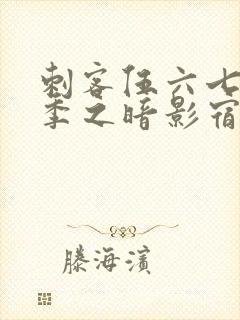 刺客伍六七
季之暗影宿
滕海滨